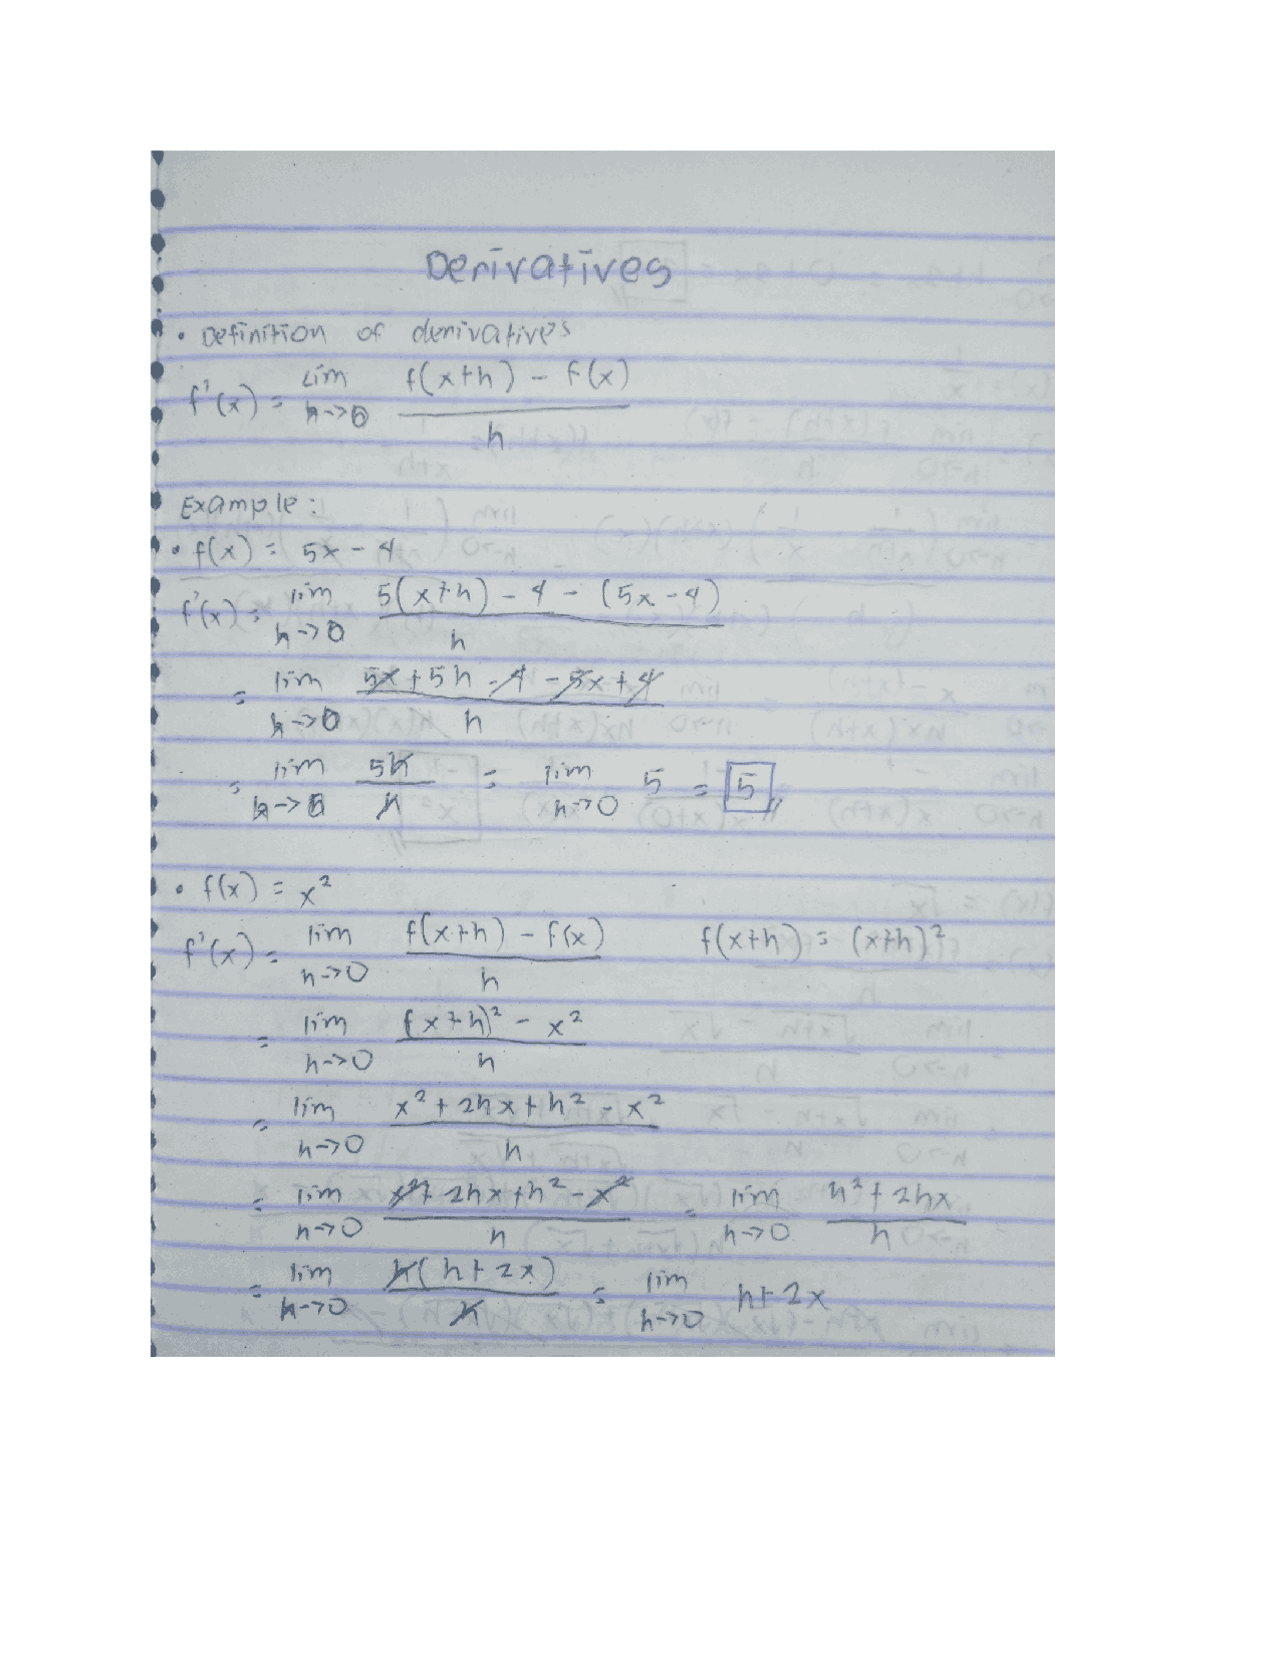 Derivatives
• Definition of derivatives
f'(x) = lim h->0 (f(x+h) - f(x)) / h
Example:
• f(x) = 5x - 4
f'(x) = lim h->0 (5(x+h) - 4 - (5x-4)) / h
= lim h->0 (5x + 5h - 4 - 5x + 4) / h
= lim h->0 5h / h = lim h->0 5 = 5
• f(x) = x²
f'(x) = lim h->0 (f(x+h) - f(x)) / h f(x+h) = (x+h)²
= lim h->0 ((x+h)² - x²) / h
= lim h->0 (x² + 2hx + h² - x²) / h
= lim h->0 (x² + 2hx + h² - x²) / h = lim h->0 (h² + 2hx) / h
= lim h->0 h(h + 2x) / h = lim h->0 h + 2x